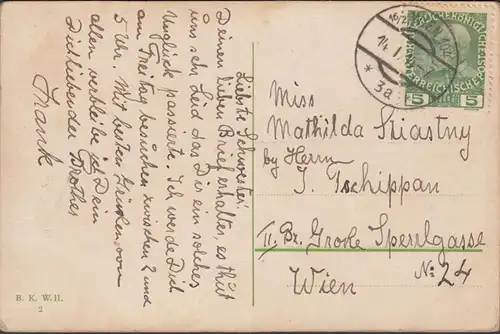 Liebste Schwester!
Deinen lieben Brief erhalten, es thut
uns sehr Leid das Dir ein solches
Unglück passierte. Ich werde Dich
am Freitag besuchen zwischen 2 und
5 Uhr. Mit besten Grüßen von
allen verbleibe ich Dein
Dichliebender Brother
Franck
Miss
Mathilda Stiastny
by Herrn
J. Tschippan
II. Bz. Große Sperrlgasse
Wien No: 24
WIEN
14. I.
* 3a
5 5
B. K. W. II.
2